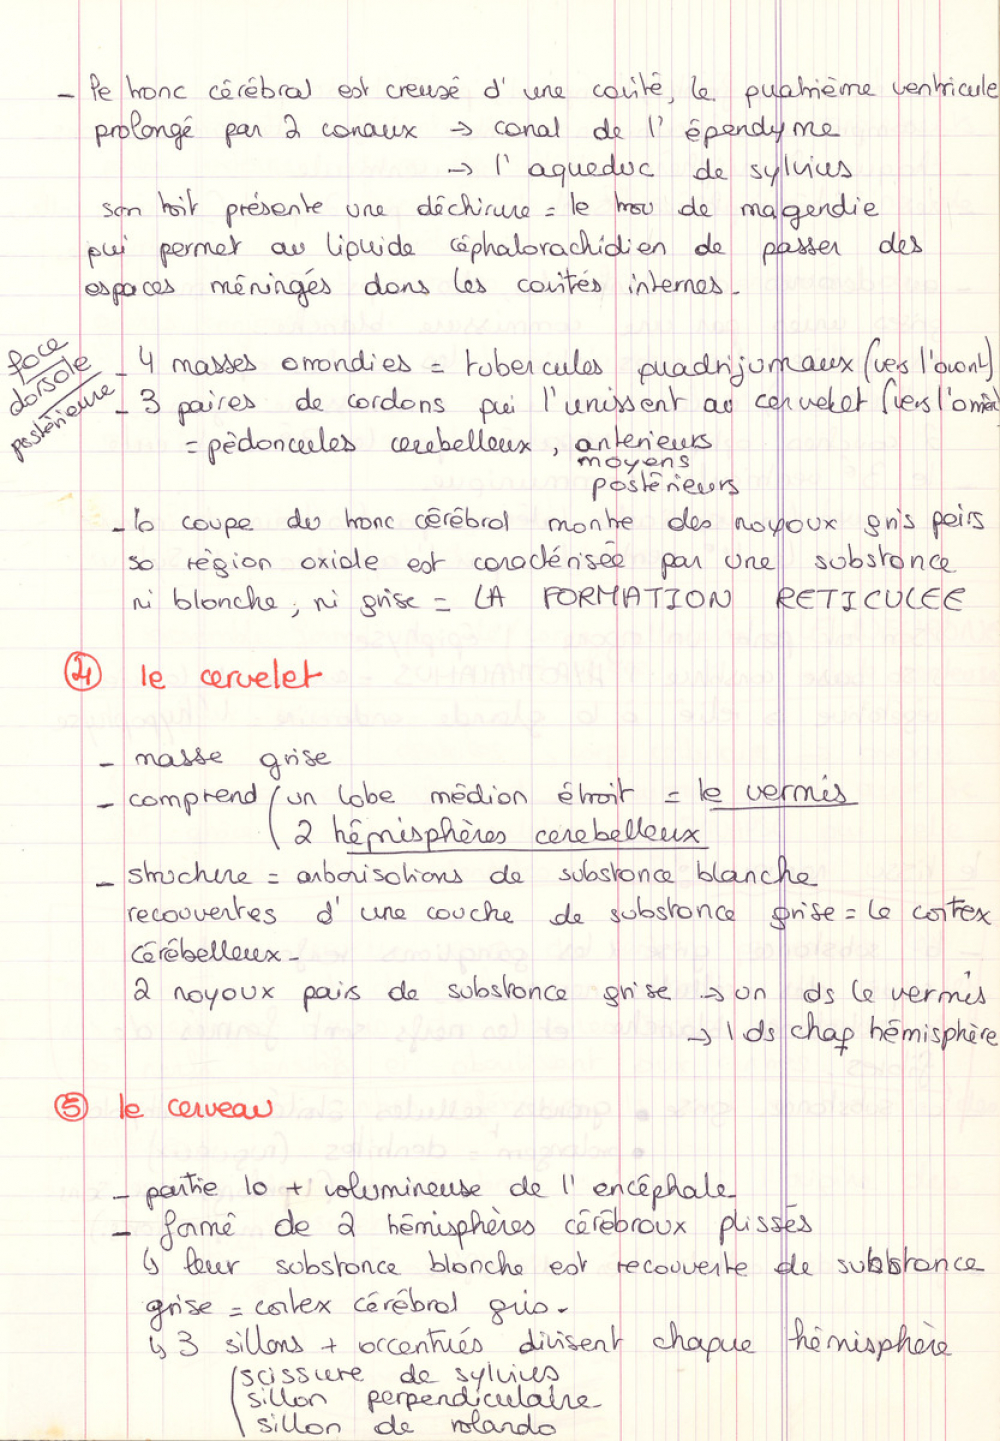 - le tronc cérébral est creusé d'une cavité, le quatrième ventricule
prolongé par 2 canaux → canal de l'épendyme
→ l'aqueduc de sylvius
son toit présente une déchirure = le trou de magendie
qui permet au liquide céphalorachidien de passer des
espaces méningés dans les cavités internes.
face
dorsale
postérieure
- 4 masses arrondies = tubercules quadrijumaux (vers l'avant)
- 3 paires de cordons qui l'unissent au cervelet (vers l'arrière
= pédoncules cerebelleux, antérieurs
moyens
postérieurs
- la coupe du tronc cérébral montre des noyaux gris pairs
sa région axiale est caractérisée par une substance
ni blanche, ni grise = LA FORMATION RETICULEE
4 le cervelet
- masse grise
- comprend ( un lobe médian étroit = le vermis
2 hémisphères cerebelleux
- structure = arborisations de substance blanche
recouvertes d'une couche de substance grise = le cortex
cérébelleux.
2 noyaux pairs de substance grise → un ds le vermis
→ 1 ds chaq hémisphère
5 le cerveau
- partie la + volumineuse de l'encéphale
- formé de 2 hémisphères cérébraux plissés
↳ leur substance blanche est recouverte de subbstance
grise = cortex cérébral gris.
↳ 3 sillons + accentués divisent chaque hémisphère
( scissure de sylvius
sillon perpendiculaire
sillon de rolando